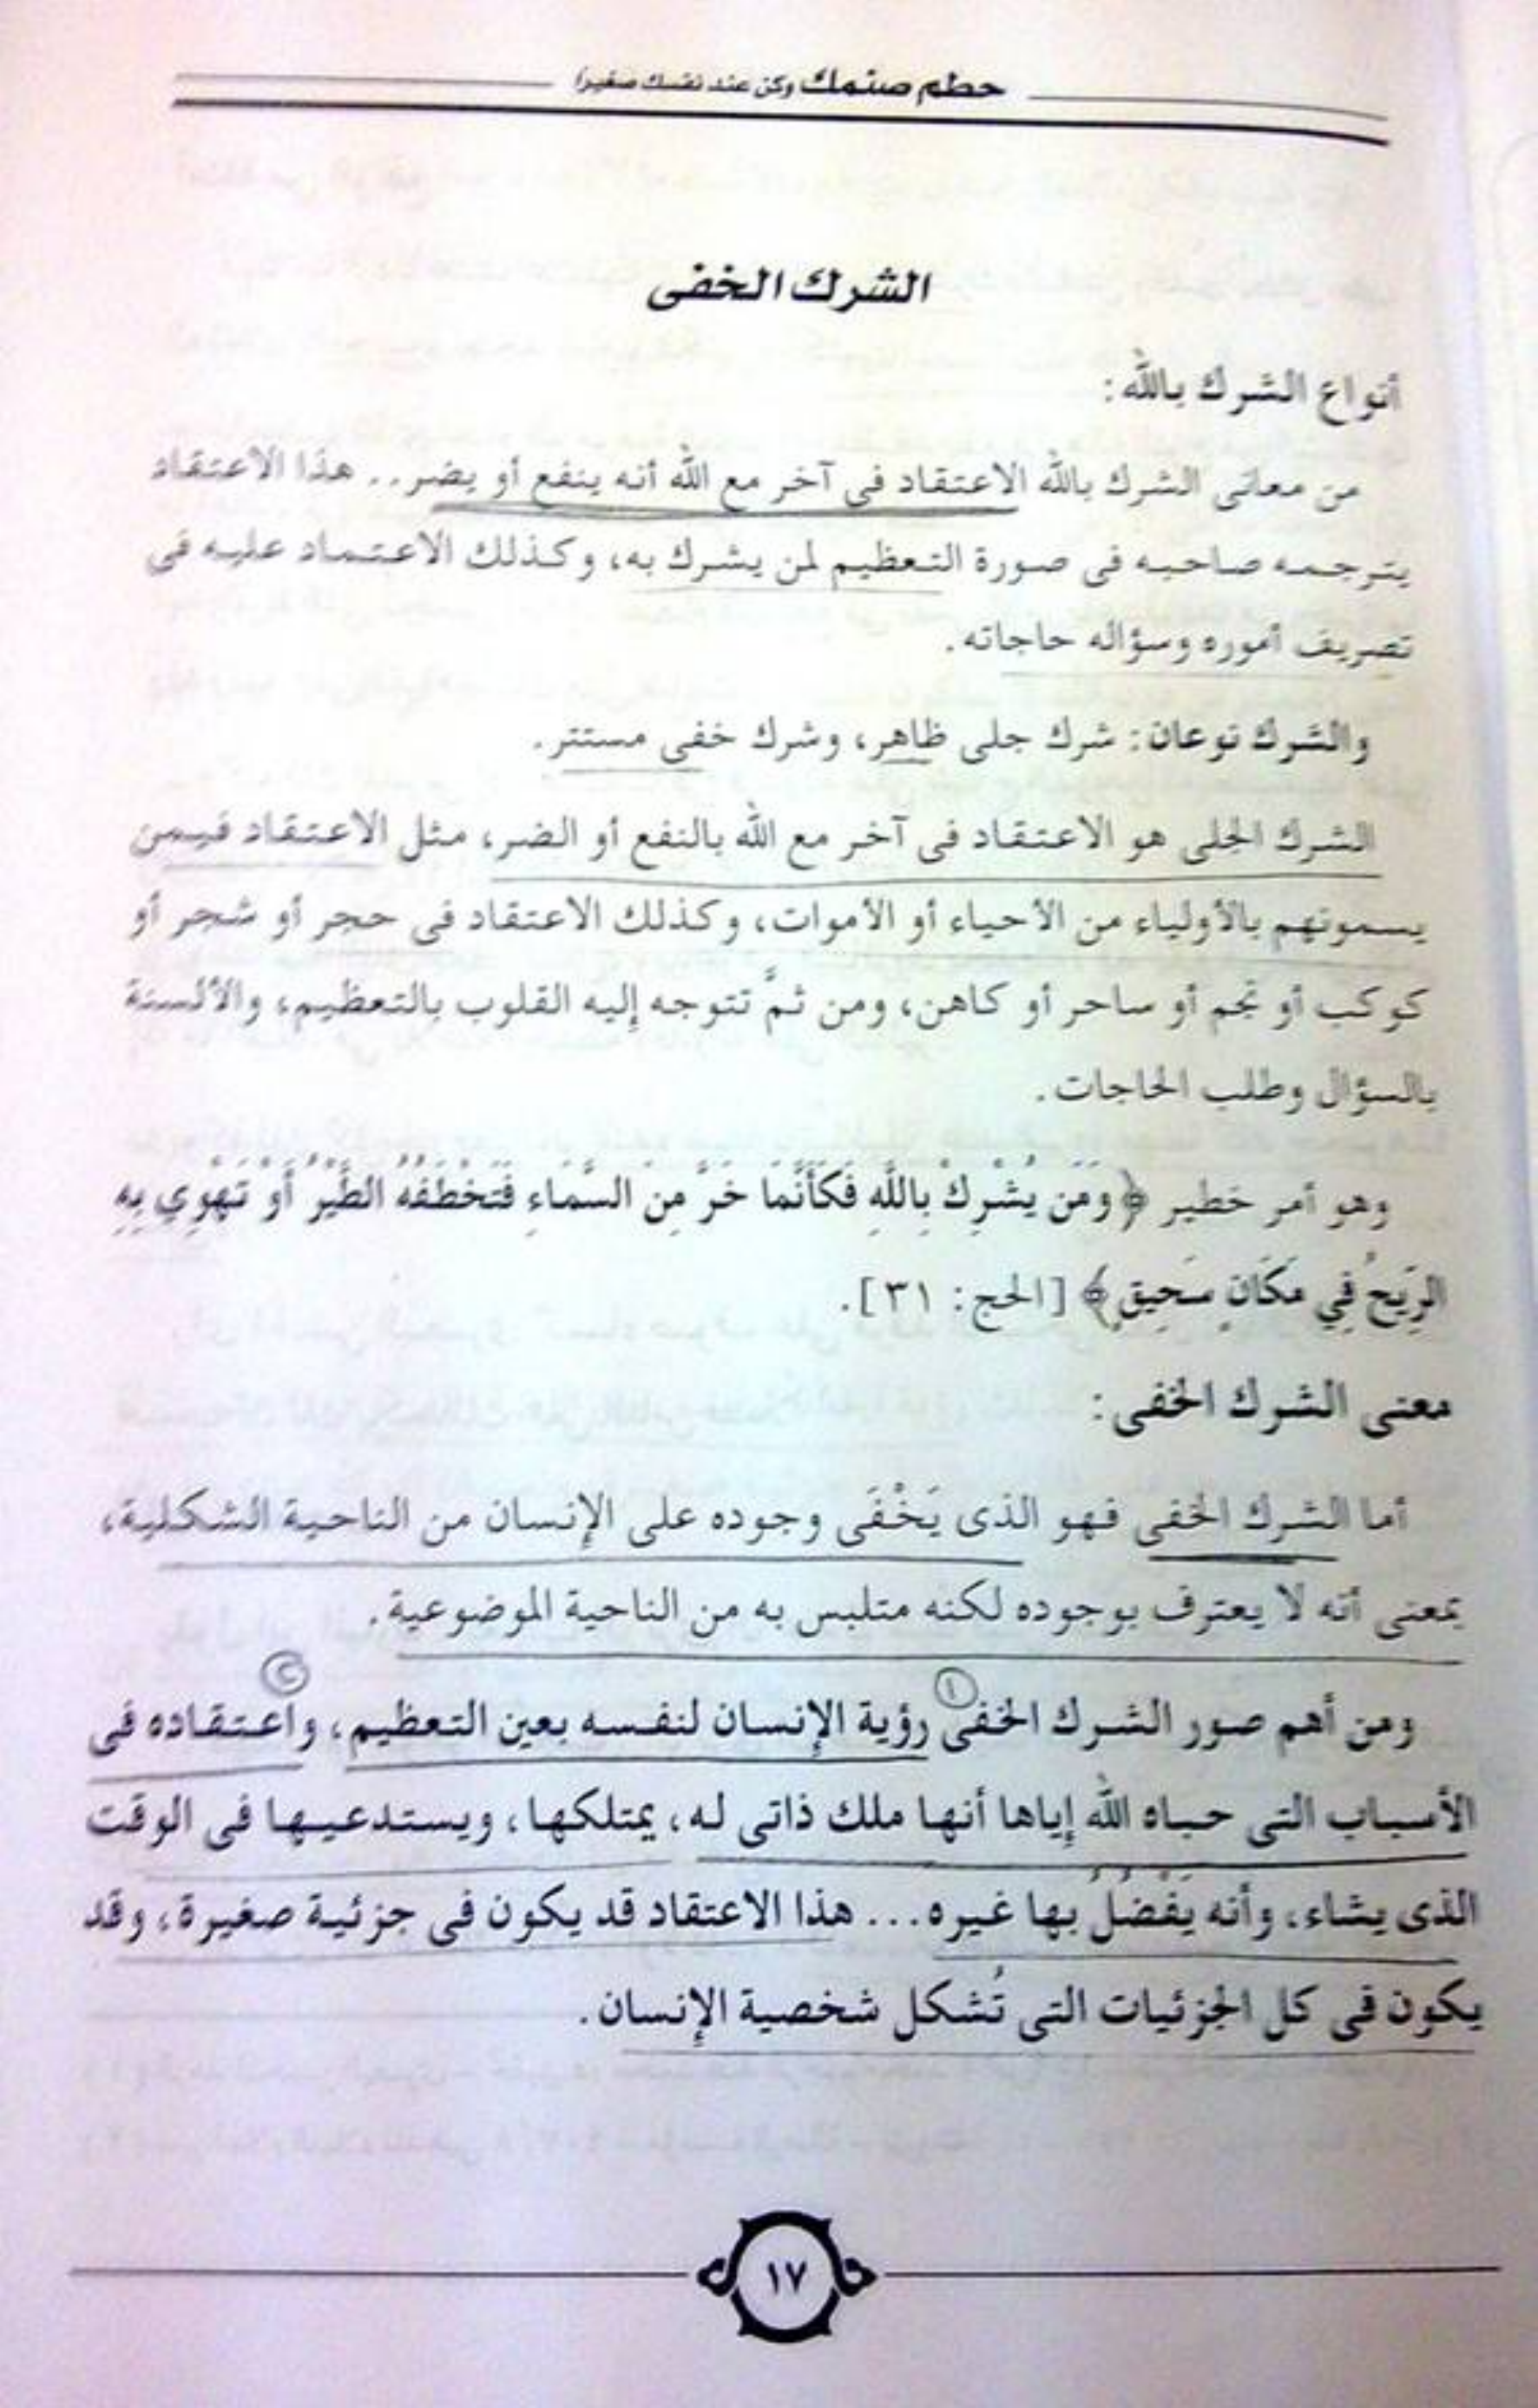 حطم صنمك وكن عند نفسك صغيراً
الشرك الخفى
أنواع الشرك بالله:
من معانى الشرك بالله الاعتقاد فى آخر مع الله أنه ينفع أو يضر.. هذا الاعتقاد
يترجمه صاحبه فى صورة التعظيم لمن يشرك به، وكذلك الاعتماد عليه فى
تصريف أموره وسؤاله حاجاته.
والشرك نوعان: شرك جلى ظاهر، وشرك خفى مستتر.
الشرك الجلى هو الاعتقاد فى آخر مع الله بالنفع أو الضر، مثل الاعتقاد فيمن
يسمونهم بالأولياء من الأحياء أو الأموات، وكذلك الاعتقاد فى حجر أو شجر أو
كوكب أو نجم أو ساحر أو كاهن، ومن ثمَّ تتوجه إليه القلوب بالتعظيم، والألسنة
بالسؤال وطلب الحاجات.
وهو أمر خطير ﴿وَمَن يُشْرِكْ بِاللَّهِ فَكَأَنَّمَا خَرَّ مِنَ السَّمَاءِ فَتَخْطَفُهُ الطَّيْرُ أَوْ تَهْوِي بِهِ
الرِّيحُ فِي مَكَانٍ سَحِيقٍ﴾ [الحج: ٣١].
معنى الشرك الخفى:
أما الشرك الخفى فهو الذى يَخْفَى وجوده على الإنسان من الناحية الشكلية،
بمعنى أنه لا يعترف بوجوده لكنه متلبس به من الناحية الموضوعية.
ومن أهم صور الشرك الخفى ① رؤية الإنسان لنفسه بعين التعظيم، ② واعتقاده فى
الأسباب التى حباه الله إياها أنها ملك ذاتى له، يمتلكها، ويستدعيها فى الوقت
الذى يشاء، وأنه يَفْضُلُ بها غيره... هذا الاعتقاد قد يكون فى جزئية صغيرة، وقد
يكون فى كل الجزئيات التى تُشكل شخصية الإنسان.
١٧